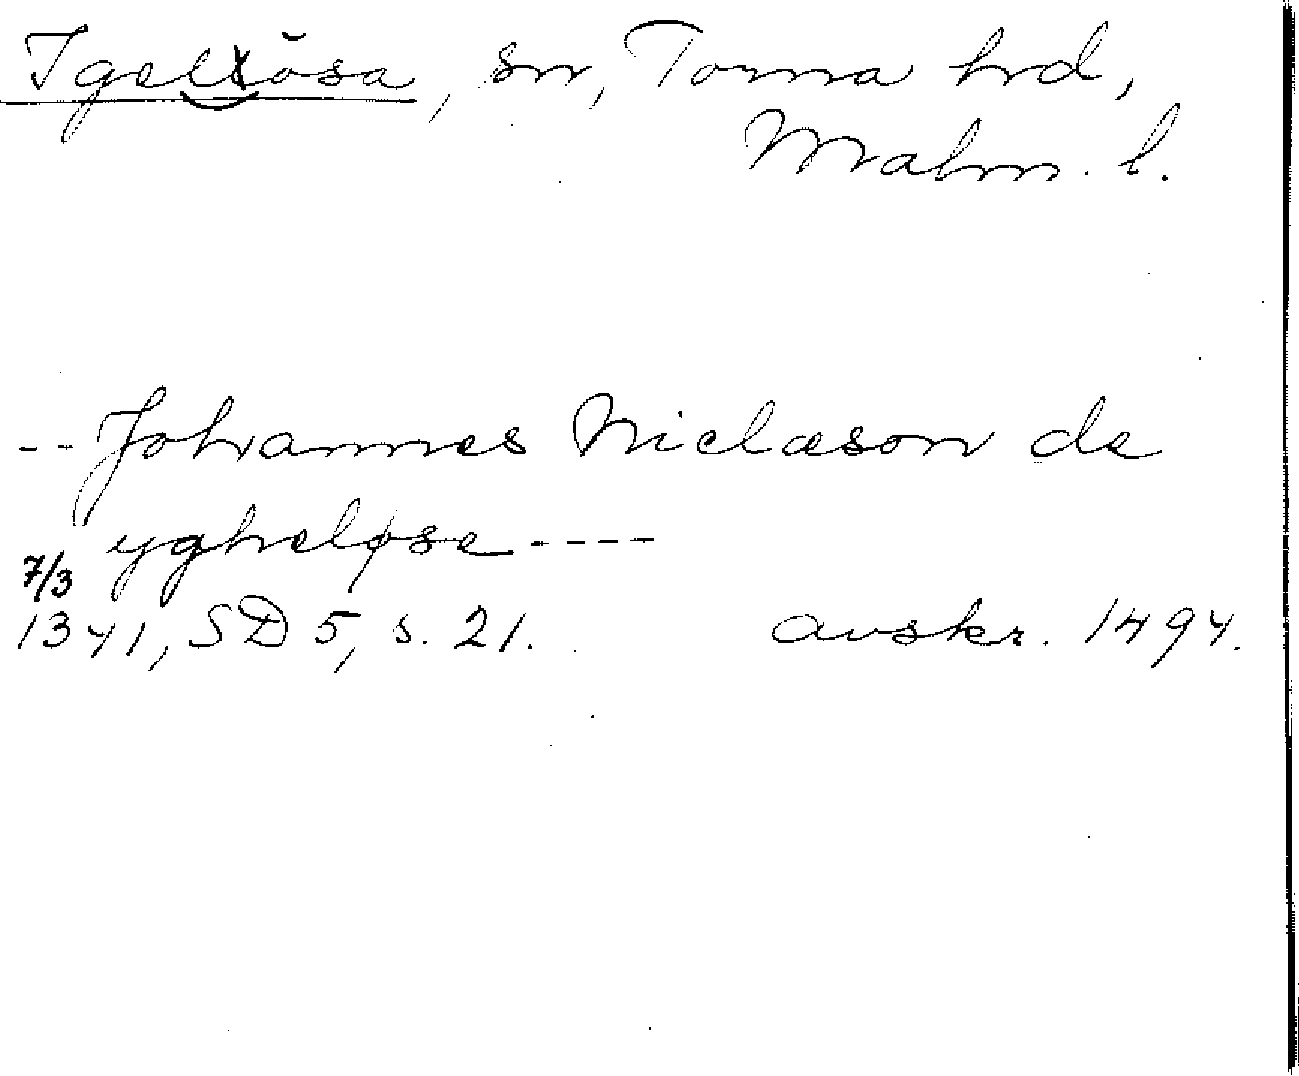 Igelösa, sn, Torna hrd,
Malm. l.
-- Johannes Niclæson de
yghæløse ----
7/3
1341, SD 5, s. 21. avskr. 1494.